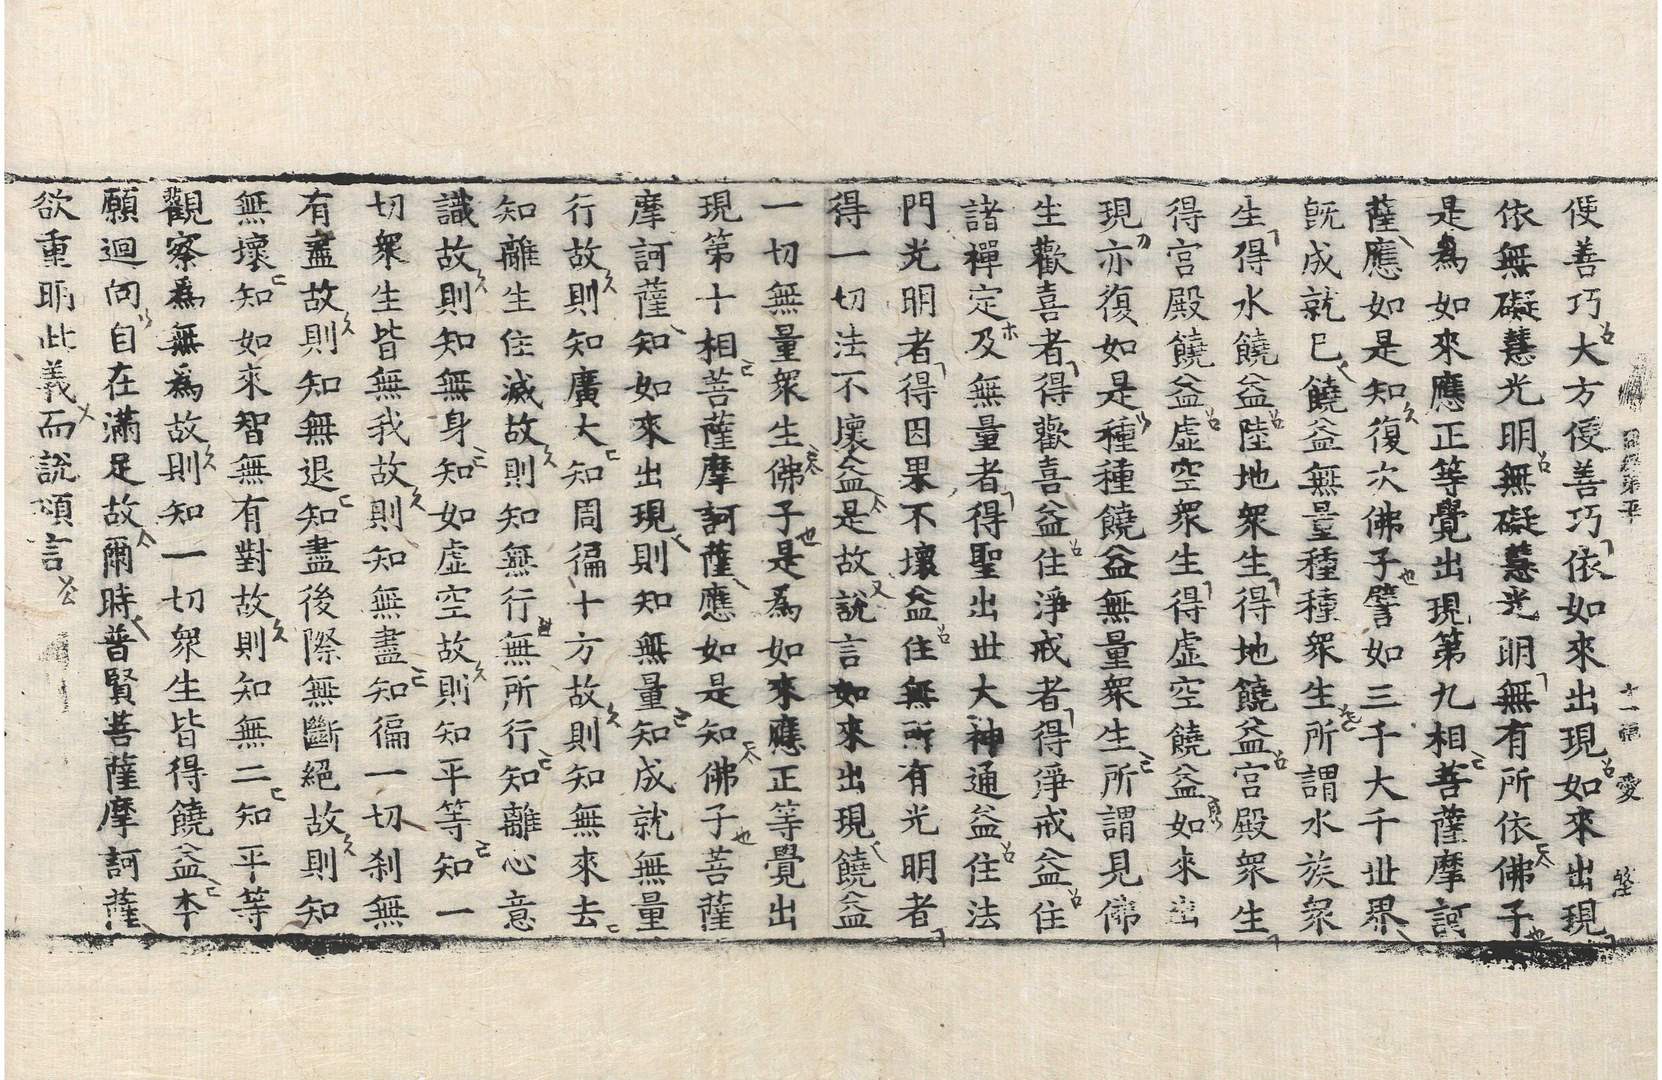 愛
便善巧大方便善巧依如來出現如來出現
依無礙慧光明無礙慧光明無有所依佛子
是為如來應正等覺出現第九相菩薩摩訶
薩應如是知復次佛子譬如三千大千世界
旣成就已饒益無量種種衆生所謂水族衆
生得水饒益陸地衆生得地饒益宮殿衆生
得宮殿饒益虛空衆生得虛空饒益如來出
現亦復如是種種饒益無量衆生所謂見佛
生歡喜者得歡喜益住淨戒者得淨戒益住
諸禪定及無量者得聖出世大神通益住法
門光明者得因果不壞益住無所有光明者
得一切法不壞益是故說言如來出現饒益
一切無量衆生佛子是為如來應正等覺出
現第十相菩薩摩訶薩應如是知佛子菩薩
摩訶薩知如來出現則知無量知成就無量
行故則知廣大知周徧十方故則知無來去
知離生住滅故則知無行無所行知離心意
識故則知無身知如虛空故則知平等知一
切衆生皆無我故則知無盡知徧一切刹無
有盡故則知無退知盡後際無斷絕故則知
無壞知如來智無有對故則知無二知平等
觀察為無為故則知一切衆生皆得饒益本
願迴向自在滿足故爾時普賢菩薩摩訶薩
欲重明此義而說頌言